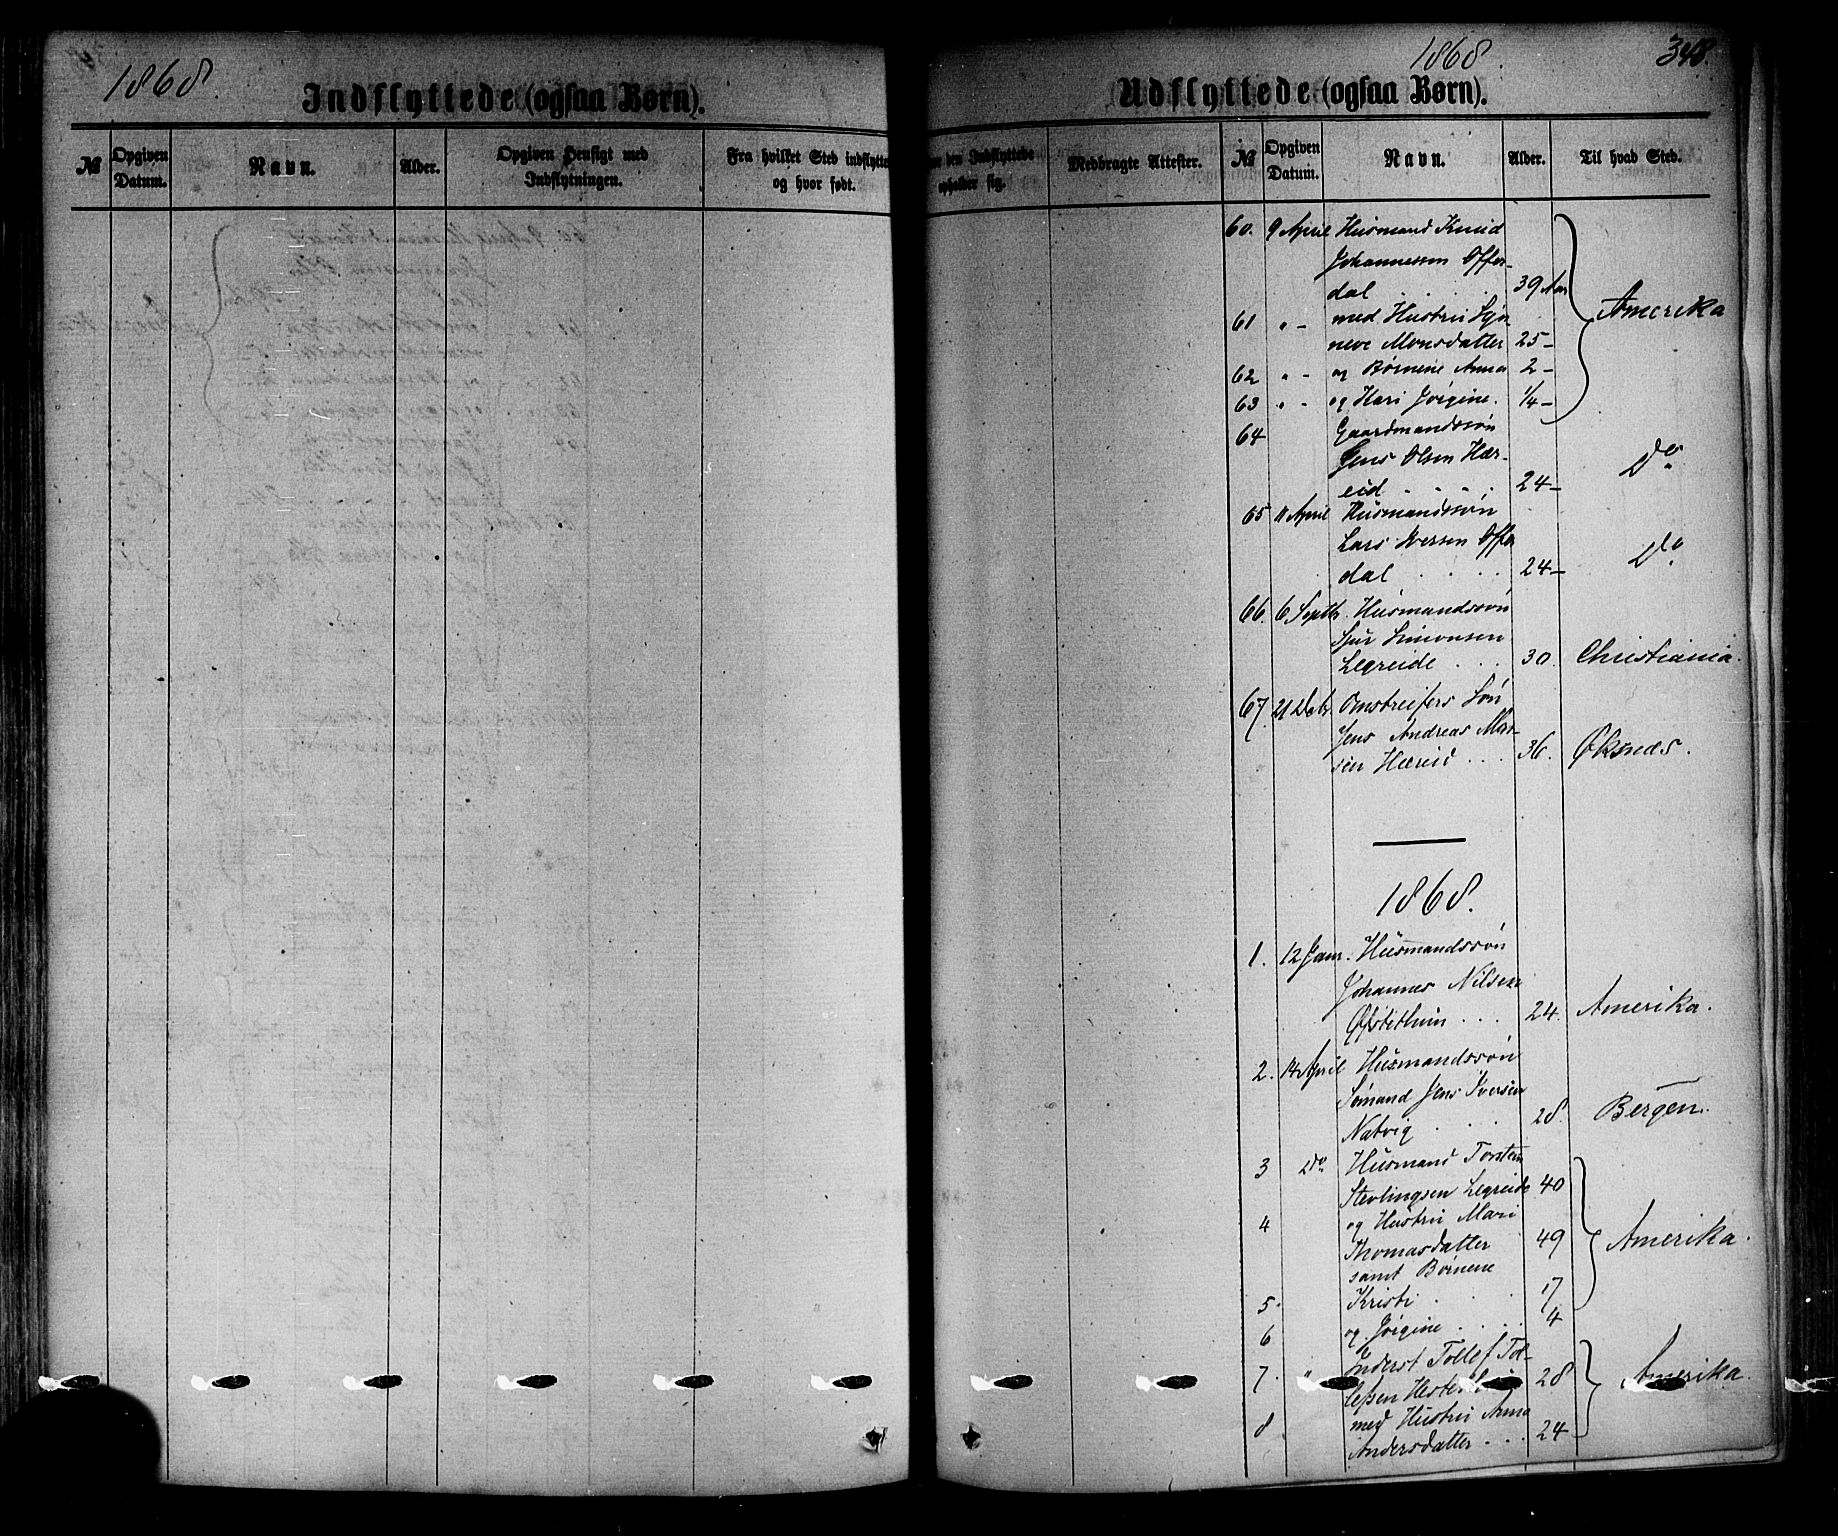 1868.
Indflyttede (ogsaa Børn).
№
Opgiven Datum.
Navn.
Alder.
Opgiven Hensigt med Indflytningen.
Fra hvilket Sted indflyttet og hvor født.
den Indflyttede opholder sig.
Medbragte Attester.
1868.
348.
Udflyttede (ogsaa Børn).
№
Opgiven Datum.
Navn.
Alder.
Til hvad Sted.
60. 9 April Husmand Knud
Johannessen Offer-
dal . . . . 39 Aar
61 " - med Hustru Syn-
neve Monsdatter 25 - Amerika
62 " - og Børnene Anna 2 -
63 " - og Kari Jørgine. 1/4 -
64 Gaardmandssøn
Jens Olsen Hær-
eid . . . . 24 - Do
65 11 April Husmandssøn
Lars Iversen Offer
dal . . . . 24 - Do
66. 6 Septb. Husmandssøn
Sjur Simonsen
Legreide . . . 30. Christiania.
67. 21 Dcb. Omstreifers Søn
Jens Andreas
sen Hæreid . . . 36. Øksnæs.
1868.
1. 12 Jan. Husmandssøn
Johannes Nilsen
. . . 24. Amerika.
2. 14 April Husmandssøn
Sømand Jens Iversen
Natvig . . . 28. Bergen.
3 Do Husmand Torstein
Stevlingsen Legreide 40
4 og Hustru Mari
Thomasdatter 49 Amerika.
samt Børnene
5. Kristi . . . 17
6 og Jørgine . . . . 4
7. " Inderst Tollef Tol-
lefsen 28 Amerika.
8 med Hustru Anna
Andersdatter . . . 24 -